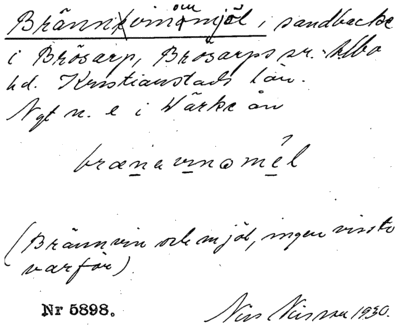 Brännvin o mjöl i sandbecke
i Brösarp, Brösarps sn. Albo
hd. Kristianstads län.
Ngt n. ö i Wärke ån
brænavinomêl
(Brännvin och mjöl, ingen visste
varför)
Nr 5898. Nils Nilsson 1930.